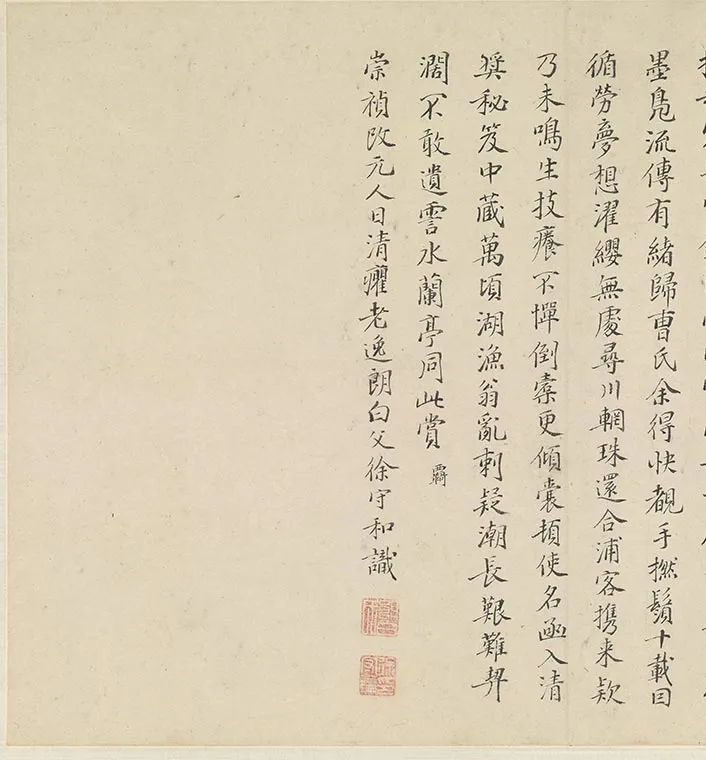 墨鳧流傳有緒歸曹氏余得快覩手撚鬚十載回
循勞夢想濯纓無處尋川輞珠還合浦客携来欵
乃未鳴生技癢不憚倒橐更傾囊頓使名函入清
奘秘笈中藏萬頃湖漁翁亂刺疑潮長艱難契
濶不敢遺霅水蘭亭同此賞
崇禎改元人日清癯老逸朗白父徐守和識